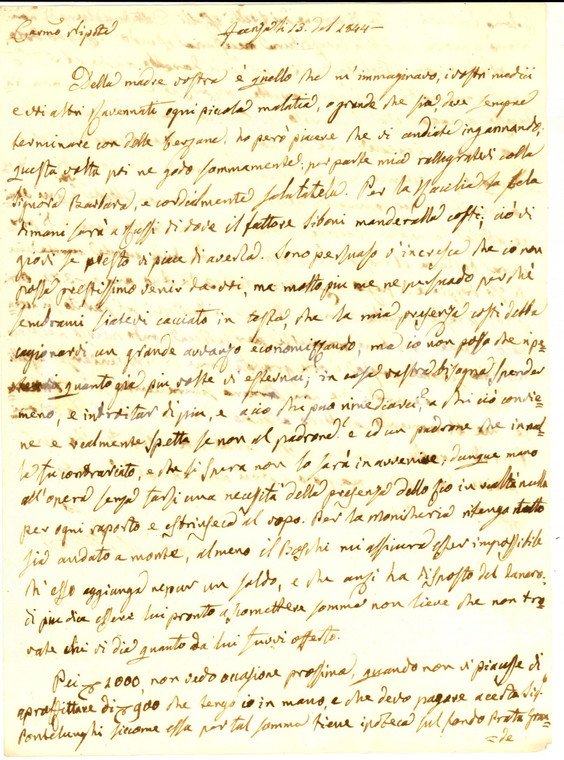 Carmo Nipote
li 13. del 1844
Della madre vostra è quello che m'immaginavo, i vostri medici
e voi altri spaventati ogni piccola malatia, o grande che sia deve sempre
terminare con delle Terzane. ho però piacere che vi andiate ingannando;
questa volta poi ne godo sommamente; per parte mia rallegratevi colla
Signora Barbara, e cordialmente salutatela. Per la la
dimani sarà a di dove il fattore Siboni manderalla costì; ciò vi
giovi se presto vi piace di averla. Sono persuaso v'incresca che io non
possa prestissimo venir da voi, ma molto più me ne persuado perchè
sembrami siatevi cacciato in testa, che la mia presenza costì debba
cagionarvi un grande avvanzo economizzando; ma io non posso che ripe-
quanto già più volte vi esternai; in casa vostra bisogna spender
meno, e introitar di più, e a ciò chi può rimediarvi, a chi ciò convie-
ne e realmente spetta se non al padrone? e ad un padrone che in nul-
la fu contrariato, e che si spera non lo sarà in avvenire; dunque mano
all'opera senza farsi una necessità della presenza dello zio in realtà nulla
per ogni raporto e estrinseca al uopo. Per la ritengo tutto
sia andato a monte, almeno il Boschi mi assicura esser impossibile
ch'esso aggiunga neppur un soldo, e che anzi ha disposto del danaro.
di più dice essere lui pronto a scomettere somma non lieve che non tro-
vate chi vi dia quanto da lui fuvvi offerto.
Pei 2000, non vedo occasione prossima, quando non vi piacesse di
approfittare di 900 che tengo io in mano, e che devo pagare a certa Sig.a
Pontelunghi siccome essa per tal somma tiene ipoteca sul fondo Prata Gran-
=de